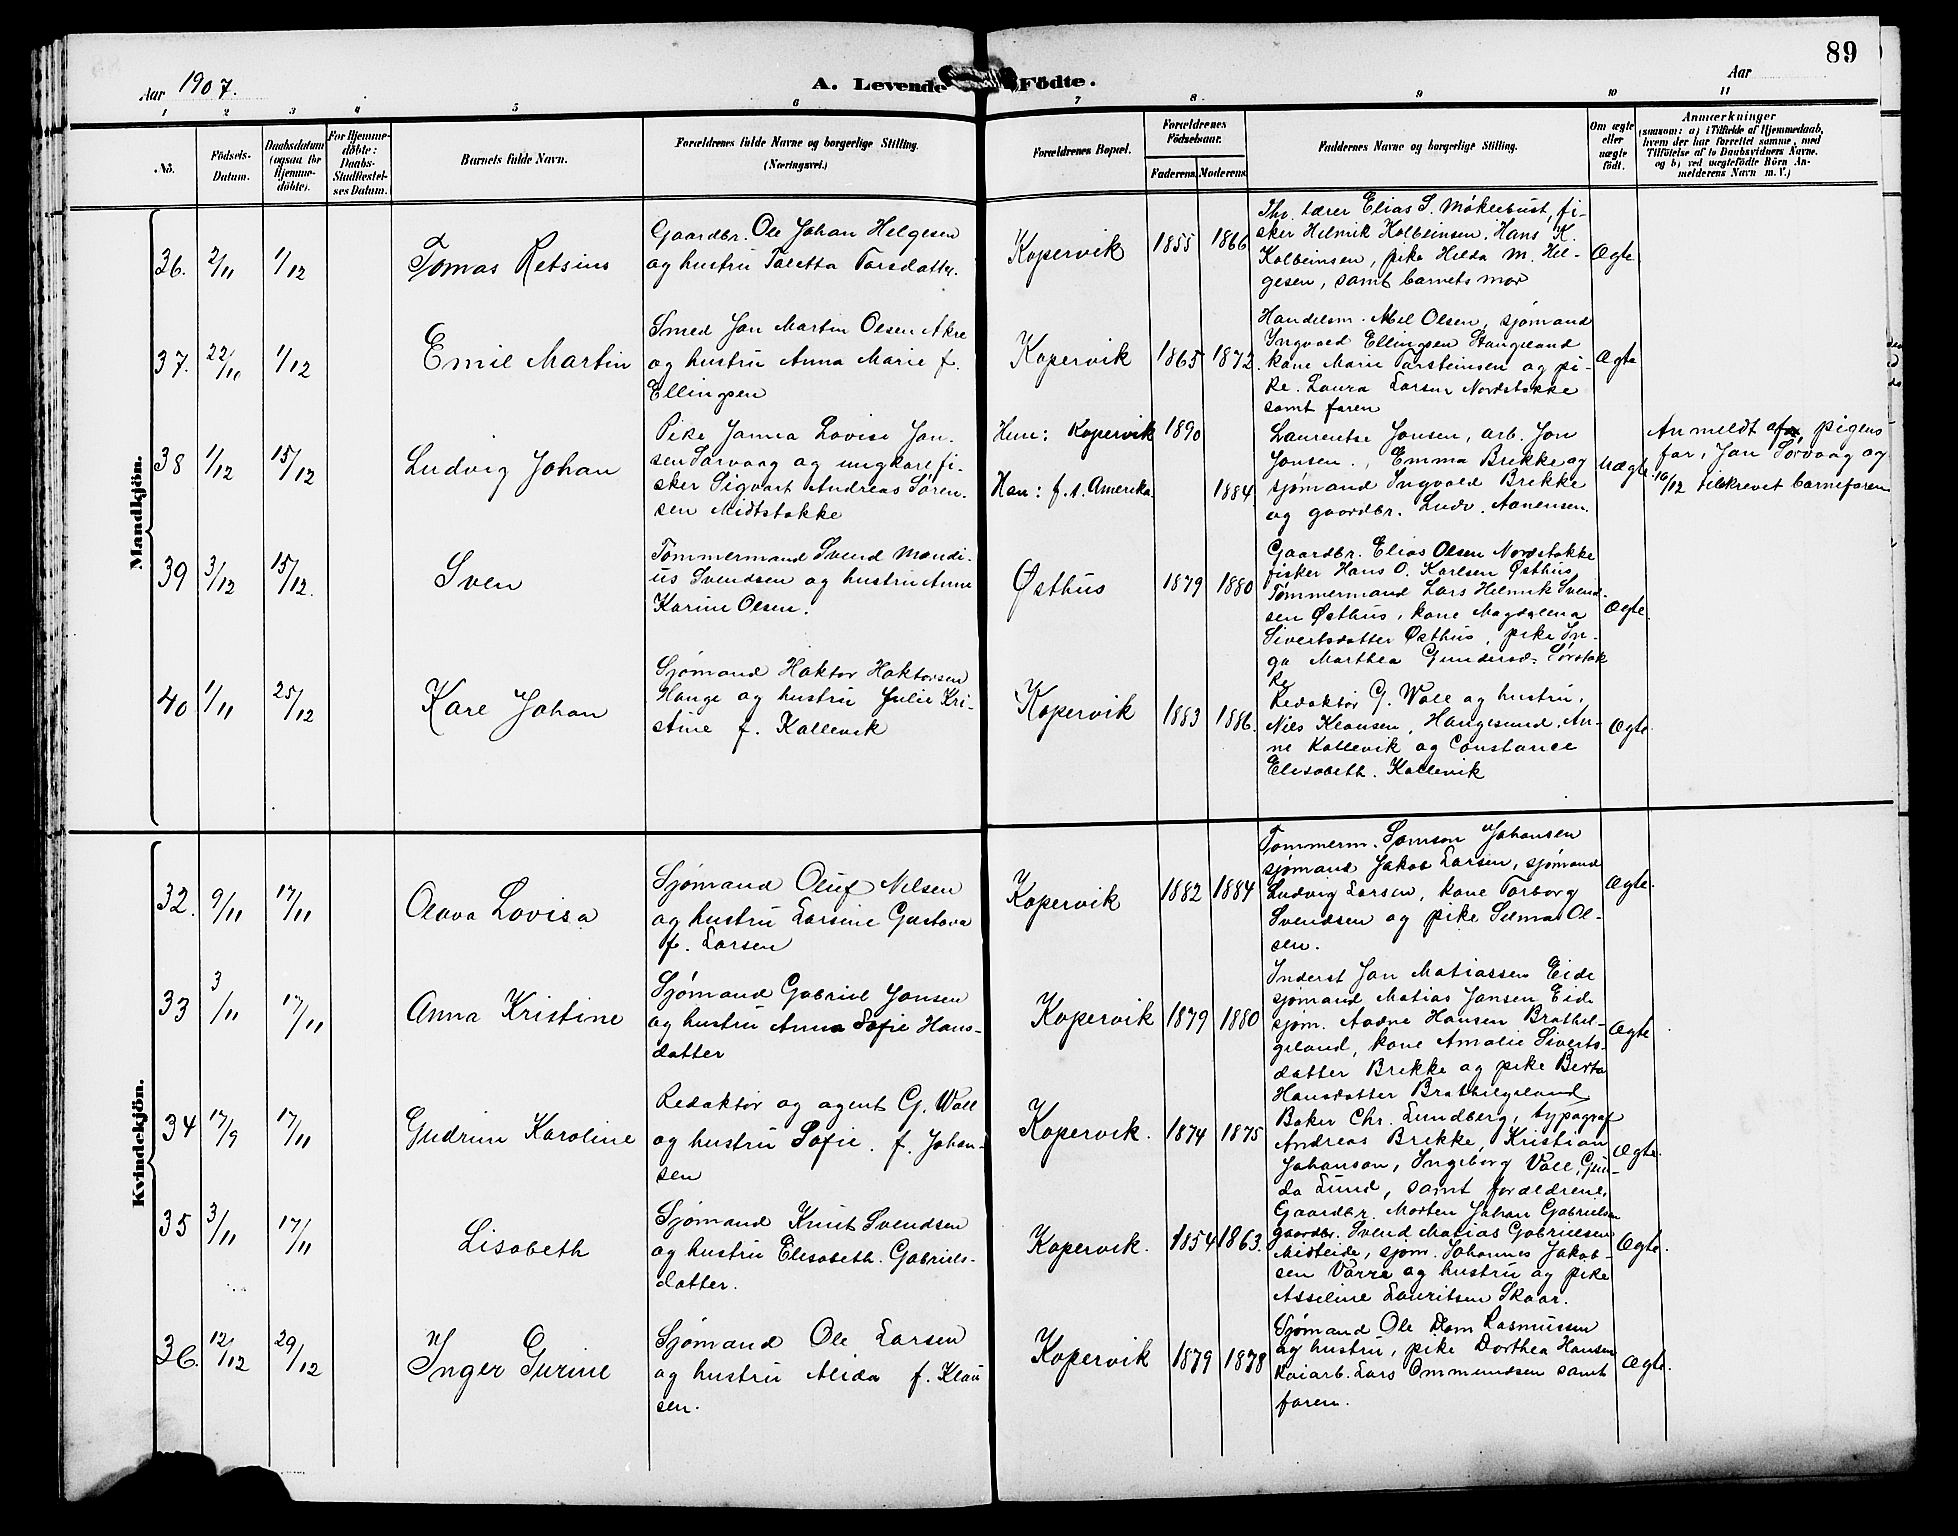 89
Aar 1907.
A. Levende Födte.
Aar
1 2 3 4 5 6 7 8 9 10 11
No.
Födsels-Datum.
Daabsdatum (ogsaa for Hjemme-döbte).
For Hjemme-döbte: Daabs-Stadfæstel-ses Datum.
Barnets fulde Navn.
Forældrenes fulde Navne og borgerlige Stilling. (Næringsvei.)
Forældrenes Bopæl.
Forældrenes Födselsaar.
Faderens. Moderens.
Faddernes Navne og borgerlige Stilling.
Om ægte eller uægte födt.
Anmærkninger
(saasom: a) i Tilfælde af Hjemmedaab, hvem der har forrettet samme, med Tilföielse af to Daabsvidners Navne. og b) ved uægtefödte Börn An-melderens Navn m. V.)
Mandkjön.
36. 2/11 1/12 Tomas Retsius
Gaardbr. Ole Johan Helgesen
og hustru Taletta Tarsdatter.
Kopervik 1855 1866
Elias S. Møklebust, fi-
sker Helmik Kolbeinsen. Hans K.
Kolbeinsen, pike Hilda M. Hel-
gesen, samt barnets mor
Ægte
37. 22/11 1/12 Emil Martin
Smed Jan Martin Olsen Akre
og hustru Anna Marie f.
Ellingsen
Kopervik 1865 1872.
Handelsm. Abel Olsen, sjømand
Ingvald Ellingsen Stangeland
kone Marie Tarsteinsen og pi-
ke. Laura Larsen Nordstokke
samt faren
Ægte
38 1/12 15/12 Ludvig Johan
Pike Janna Lovise Jan-
sen Sørvaag og ungkar fi-
sker Sigvart Andreas Søren-
sen Midtstokke
Hun: Kopervik 1890
Han: f. t. Amerika 1884.
Laurentse Jonsen, arb. Jon
Jonsen., Emma Brekke og
sjømand Ingvald Brekke
og gaardbr. Ludv. Aanensen.
Uægte
Anmeldt af pigens
far, Jan Sørvaag og
10/12 tilskrevet barnefaren
39 3/12 15/12. Sven
Tømmermand Svend Mandi-
us Svendsen og hustru Anne
Karine Olsen.
Østhus 1879 1880
Gaardbr. Elias Olsen Nordstokke
fisker Hans O. Karlsen Østhus,
Tømmermand Lars Helmik Svend-
sen Østhus, kone Magdalena
Sivertsdatter Østhus, pike In-
ga Marthea Gundersd. Sørstok
ke
Ægte.
40 1/11 25/12 Kare Johan
Sjømand Haktor Haktorsen
Hauge og hustru Julie Kri-
stine f. Kallevik
Kopervik 1883 1886.
Redaktør G. Wall og hustru,
Niels Klausen, Haugesund, An-
ne Kallevik og Constance
Elisabeth. Kallevik
Ægte.
Kvindekjön.
32. 9/11 17/11 Olava Lovisa
Sjømand Oluf Nilsen
og hustru Larsine Gustava
f. Larsen
Kopervik 1882 1884
Tømmerm. Samson Johansen
sjømand Jakob Larsen, sjømand
Ludvig Larsen, kone Tarborg
Svendsen og pike Selma Ol-
sen.
Ægte.
33 3/11 17/11 Anna Kristine
Sjømand Gabriel Jansen
og hustru Anna Sofie Hans-
datter
Kopervik 1879 1880
Inderst Jan Matiassen Eide
sjømand Matias Jansen Eide
sjøm. Aadne Hansen Brathel-
geland, kone Amalie Siverts-
datter Brekke og pike Berta
Hansdatter Brathelgeland
Ægte
34 17/9 17/11 Gudrun Karoline
Redaktør og agent G. Wall
og hustru Sofie. f. Johan-
sen
Kopervik. 1874 1875
Baker Chr. Lundberg, typograf
Andreas Brekke, Kristian
Johanson, Ingeborg Vall, Gun-
da Lund, samt forældrene.
Ægte.
35 3/11 17/11 Lisabeth
Sjømand Knut Svendsen
og hustru Elisabeth. Gabriels-
datter.
Kopervik. 1854 1863.
Gaardbr. Morten Johan Gabrielsen
gaardbr. Svend Matias Gabrielsen
Midteide, sjøm. Johannes Jakob-
sen Varre og hustru og pike
Asseline Lauritsen Skaar.
Ægte.
36. 12/12 29/12 Inger Gurine
Sjømand Ole Larsen
og hustru Alida f. Klau
sen.
Kopervik 1879 1878
Sjømand Ole Dam Rasmussen
og hustru, pike Dorthea Hansen
Kaiarb. Lars Ommundsen samt
faren.
Ægte.